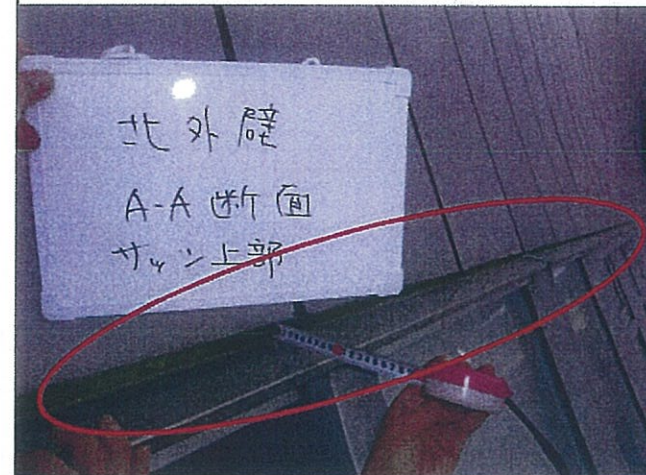 北外壁
A-A 断面
サッシ上部